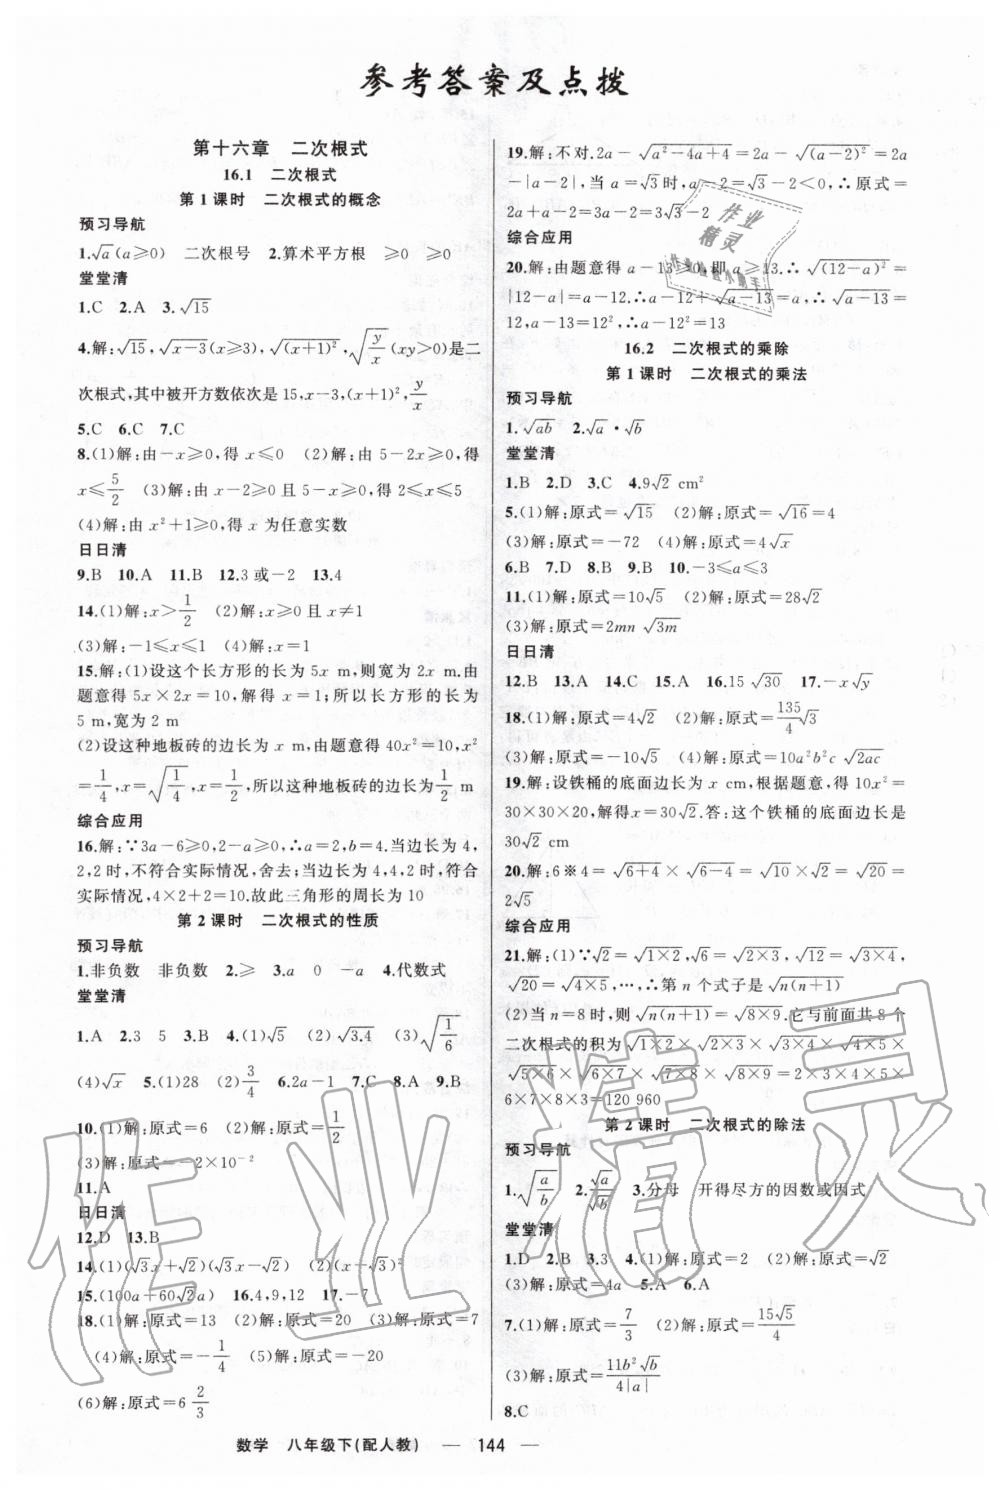 参考答案及点拨
第十六章 二次根式
16.1 二次根式
第1课时 二次根式的概念
预习导航
1.√a(a≥0) 二次根号 2.算术平方根 ≥0 ≥0
堂堂清
1.C 2.A 3.√15
4.解:√15,√(x-3)(x≥3),√((x+1)²),√(y/x)(xy>0)是二
次根式,其中被开方数依次是15,x-3,(x+1)²,y/x
5.C 6.C 7.C
8.(1)解:由-x≥0,得 x≤0 (2)解:由5-2x≥0,得
x≤5/2 (3)解:由 x-2≥0 且 5-x≥0,得 2≤x≤5
(4)解:由 x²+1≥0,得 x 为任意实数
日日清
9.B 10.A 11.B 12.3或-2 13.4
14.(1)解:x>1/2 (2)解:x≥0 且 x≠1
(3)解:-1≤x≤1 (4)解:x=1
15.解:(1)设这个长方形的长为5x m,则宽为2x m.由
题意得5x×2x=10,解得 x=1;所以长方形的长为
5 m,宽为2 m
(2)设这种地板砖的边长为 x m,由题意得40x²=10,x²
=1/4,x=√(1/4),x=1/2,所以这种地板砖的边长为1/2 m
综合应用
16.解:∵3a-6≥0,2-a≥0,∴a=2,b=4.当边长为4,
2,2时,不符合实际情况,舍去;当边长为4,4,2时,符合
实际情况,4×2+2=10.故此三角形的周长为10
第2课时 二次根式的性质
预习导航
1.非负数 非负数 2.≥ 3.a 0 -a 4.代数式
堂堂清
1.A 2.3 5 3.B 4.(1)√5 (2)√3.4 (3)√(1/6)
(4)√x 5.(1)28 (2)3/4 6.2a-1 7.C 8.A 9.B
10.(1)解:原式=6 (2)解:原式=1/2
(3)解:原式=-2×10⁻²
11.A
日日清
12.D 13.B
14.(1)(√3x+√2)(√3x-√2) (2)(x-√3)²
15.(100a+60√2a) 16.4,9,12 17.-7
18.(1)解:原式=13 (2)解:原式=20 (3)解:原式=7
(4)解:原式=-1/4 (5)解:原式=-20
(6)解:原式=6 2/3
19.解:不对.2a-√(a²-4a+4)=2a-√((a-2)²)=2a
-|a-2|,当 a=√3时,a-2=√3-2<0,∴原式=
2a+a-2=3a-2=3√3-2
综合应用
20.解:由题意得 a-13≥0,即 a≥13.∴√((12-a)²)=
|12-a|=a-12.∴a-12+√(a-13)=a,∴√(a-13)=
12,a-13=12²,∴a-12²=13
16.2 二次根式的乘除
第1课时 二次根式的乘法
预习导航
1.√ab 2.√a·√b
堂堂清
1.B 2.D 3.C 4.9√2 cm²
5.(1)解:原式=√15 (2)解:原式=√16=4
(3)解:原式=-72 (4)解:原式=4√x
6.B 7.D 8.B 9.B 10.-3≤a≤3
11.(1)解:原式=10√5 (2)解:原式=28√2
(3)解:原式=2mn√3m
日日清
12.B 13.A 14.C 15.A 16.15√30 17.-x√y
18.(1)解:原式=4√2 (2)解:原式=135/4√3
(3)解:原式=-10√5 (4)解:原式=10a²b²c√2ac
19.解:设铁桶的底面边长为 x cm,根据题意,得10x²=
30×30×20,解得x=30√2.答:这个铁桶的底面边长是
30√2 cm
20.解:6※4=√(6+4)×√(6-4)=√10×√2=√20=
2√5
综合应用
21.解:(1)∵√2=√(1×2),√6=√(2×3),√12=√(3×4),
√20=√(4×5),…,∴第 n 个式子是√(n(n+1))
(2)当 n=8时,则√(n(n+1))=√(8×9).它与前面共8个
二次根式的积为√(1×2)×√(2×3)×√(3×4)×√(4×5)×
√(5×6)×√(6×7)×√(7×8)×√(8×9)=2×3×4×5×
6×7×8×3=120 960
第2课时 二次根式的除法
预习导航
1.√(a/b) 2.√a/√b 3.分母 开得尽方的因数或因式
堂堂清
1.D 2.B 3.3 4.(1)解:原式=2 (2)解:原式=√2
(3)解:原式=4a 5.A 6.A
7.(1)解:原式=7/3 (2)解:原式=15√5/4
(3)解:原式=11b²√b/4|a|
8.C
数学 八年级下(配人教) — 144 —
作业精灵
作业精灵